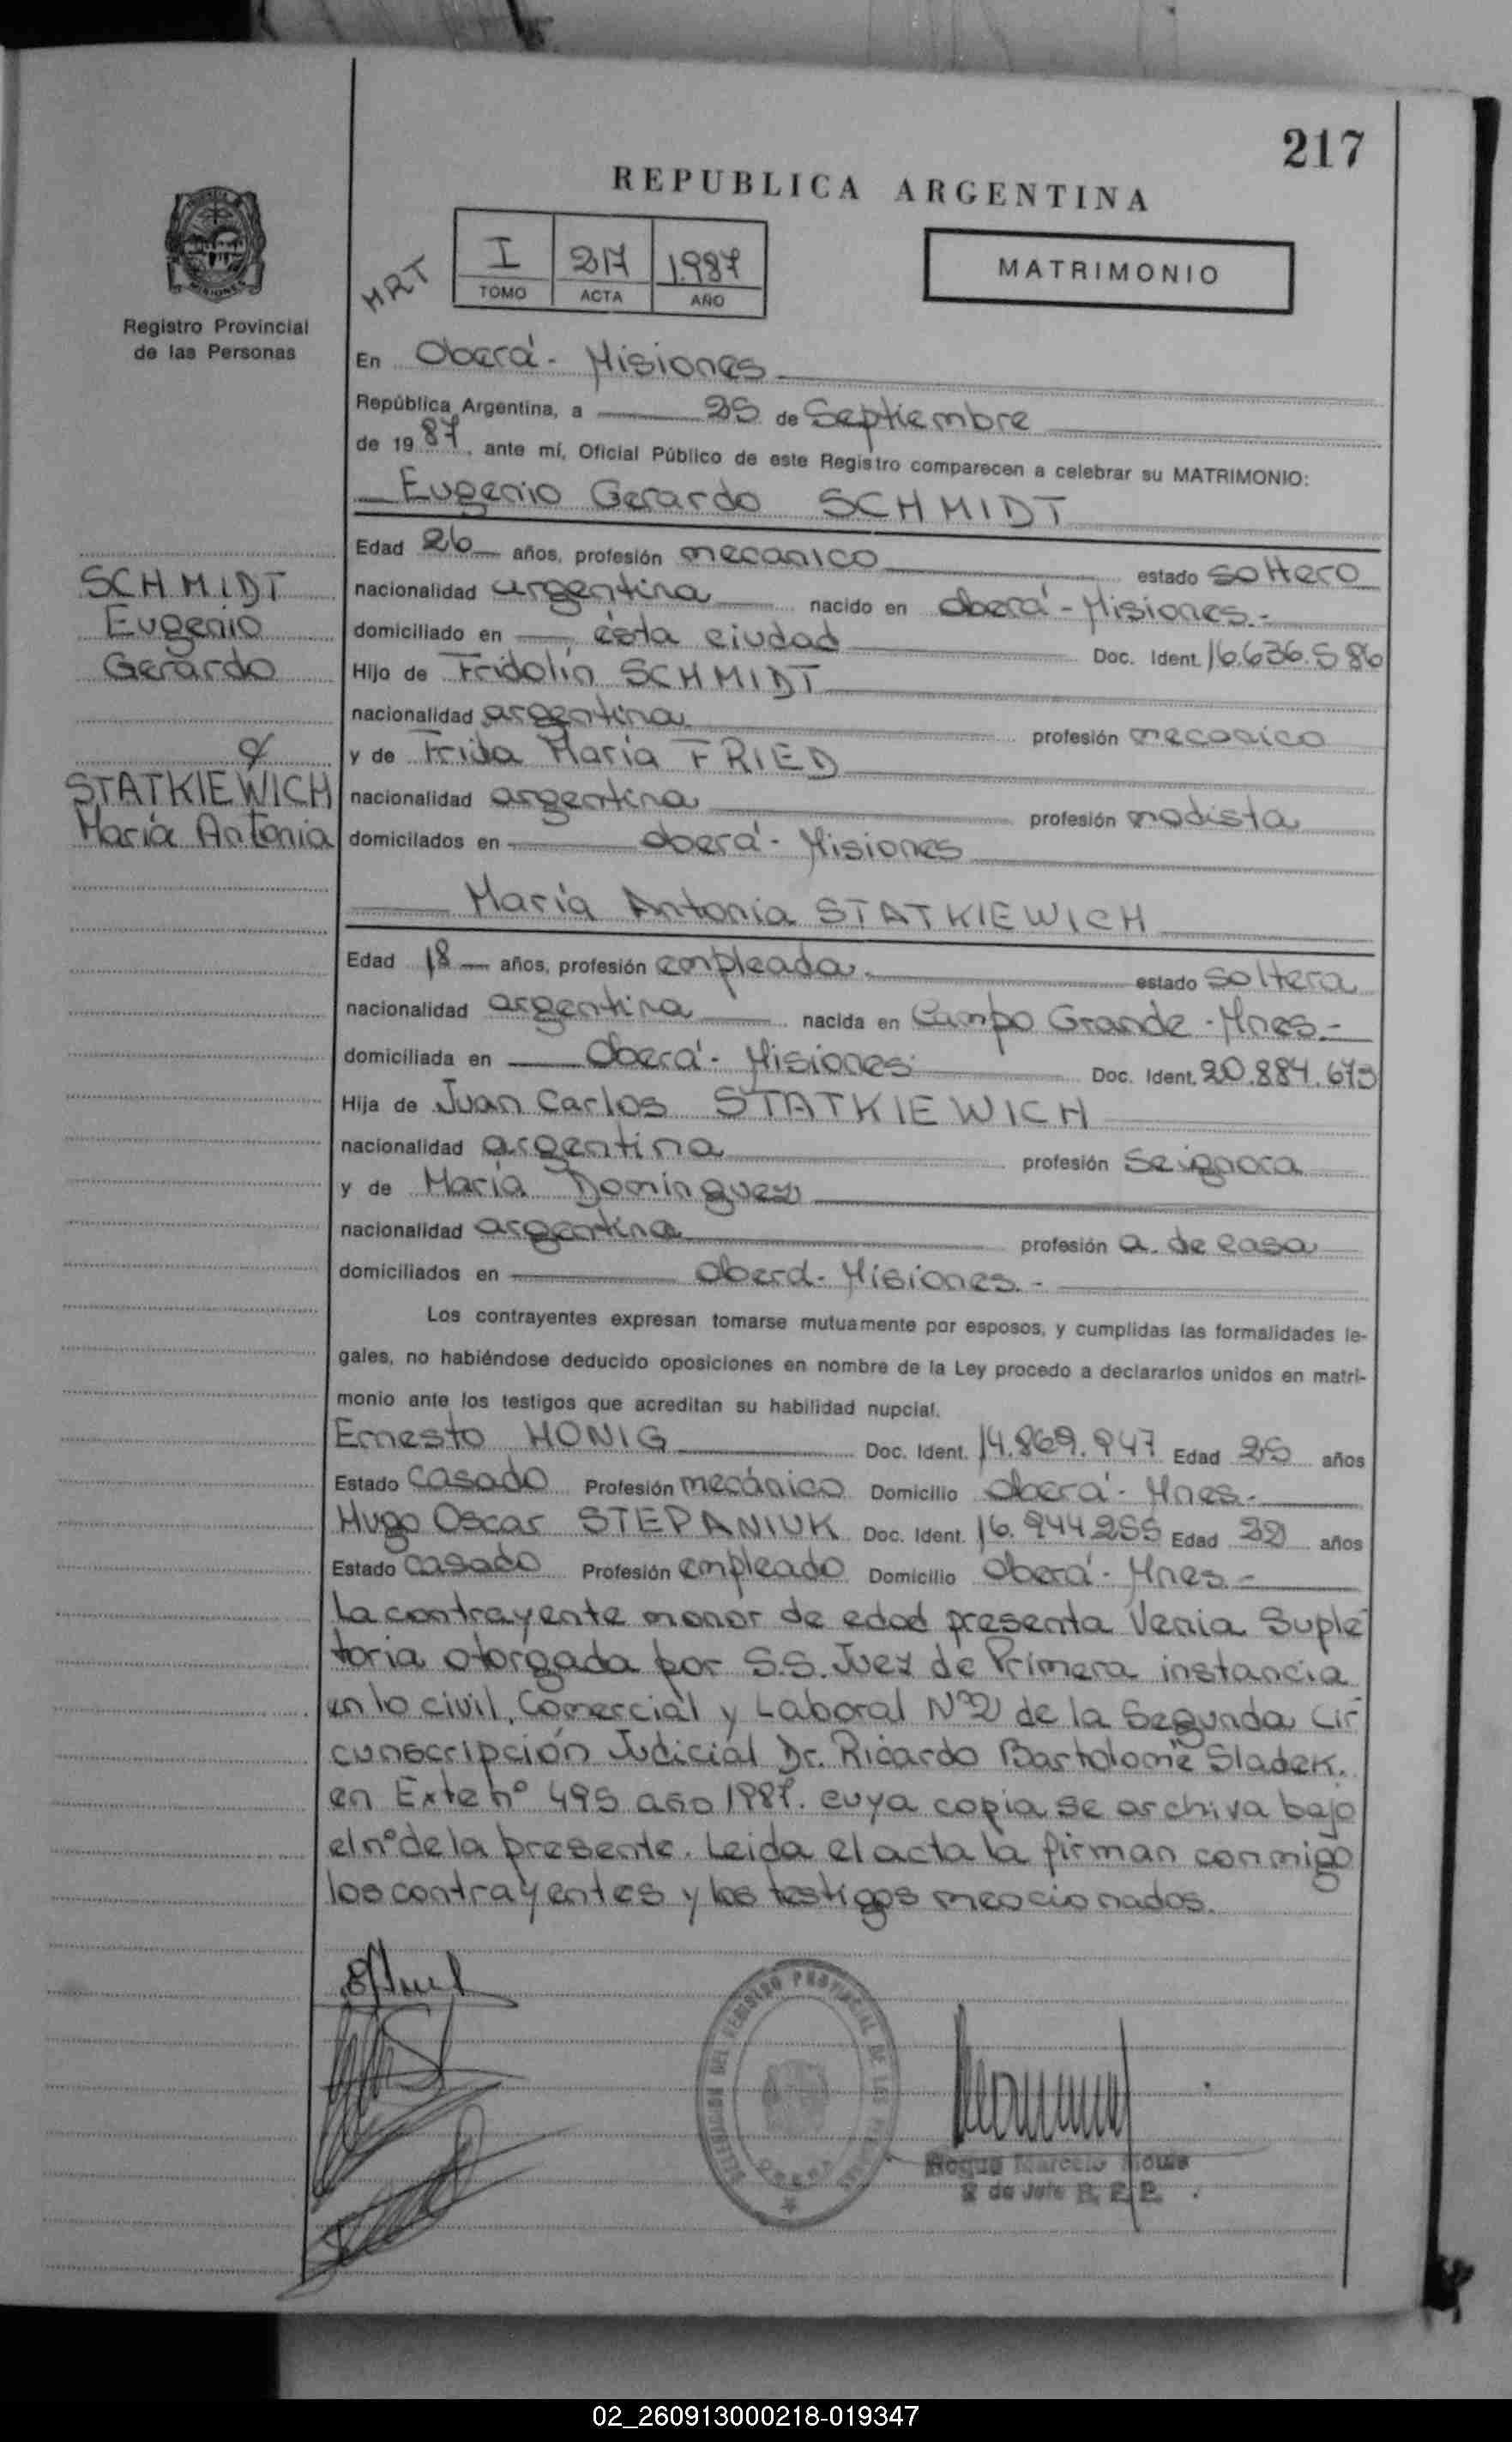 217
REPUBLICA ARGENTINA
HRT
I 217 1.987
TOMO ACTA AÑO
MATRIMONIO
Registro Provincial
de las Personas
En Oberá - Misiones
República Argentina, a 25 de Septiembre
de 1987, ante mí, Oficial Público de este Registro comparecen a celebrar su MATRIMONIO:
Eugenio Gerardo SCHMIDT
Edad 26 años, profesión mecanico estado soltero
nacionalidad argentina nacido en Oberá - Misiones.-
domiciliado en ésta ciudad Doc. Ident. 16.636.586
Hijo de Fridolín SCHMIDT
nacionalidad argentina profesión mecanico
y de Frida María FRIED
nacionalidad argentina profesión modista
domicilados en Oberá - Misiones
SCHMIDT
Eugenio
Gerardo
STATKIEWICH
María Antonia
María Antonia STATKIEWICH
Edad 18 años, profesión empleada. estado soltera
nacionalidad argentina nacida en Campo Grande - Mnes.-
domiciliada en Oberá - Misiones Doc. Ident. 20.884.673
Hija de Juan Carlos STATKIEWICH
nacionalidad argentina profesión Se ignora
y de María Dominguez
nacionalidad argentina profesión a. de casa
domiciliados en Oberá - Misiones.-
Los contrayentes expresan tomarse mutuamente por esposos, y cumplidas las formalidades le-
gales, no habiéndose deducido oposiciones en nombre de la Ley procedo a declararlos unidos en matri-
monio ante los testigos que acreditan su habilidad nupcial.
Ernesto HONIG Doc. Ident. 14.869.947 Edad 25 años
Estado casado Profesión mecánico Domicilio Oberá - Mnes.-
Hugo Oscar STEPANIUK Doc. Ident. 16.944.255 Edad 22 años
Estado casado Profesión empleado Domicilio Oberá - Mnes.-
La contrayente menor de edad presenta Venia Suple
toria otorgada por S.S. Juez de Primera instancia
en lo civil, Comercial y Laboral Nº2 de la Segunda Cir
cunscripción Judicial Dr. Ricardo Bartolomé Sladek.
en Exte nº 495 año 1987. cuya copia se archiva bajo
el nº de la presente. Leida el acta la firman conmigo
los contrayentes y los testigos mencionados.
DELEGACION DEL REGISTRO PROVINCIAL DE LAS PERSONAS
OBERA
Roque Marcelo
2 do Jefe R. P. P.
02_260913000218-019347